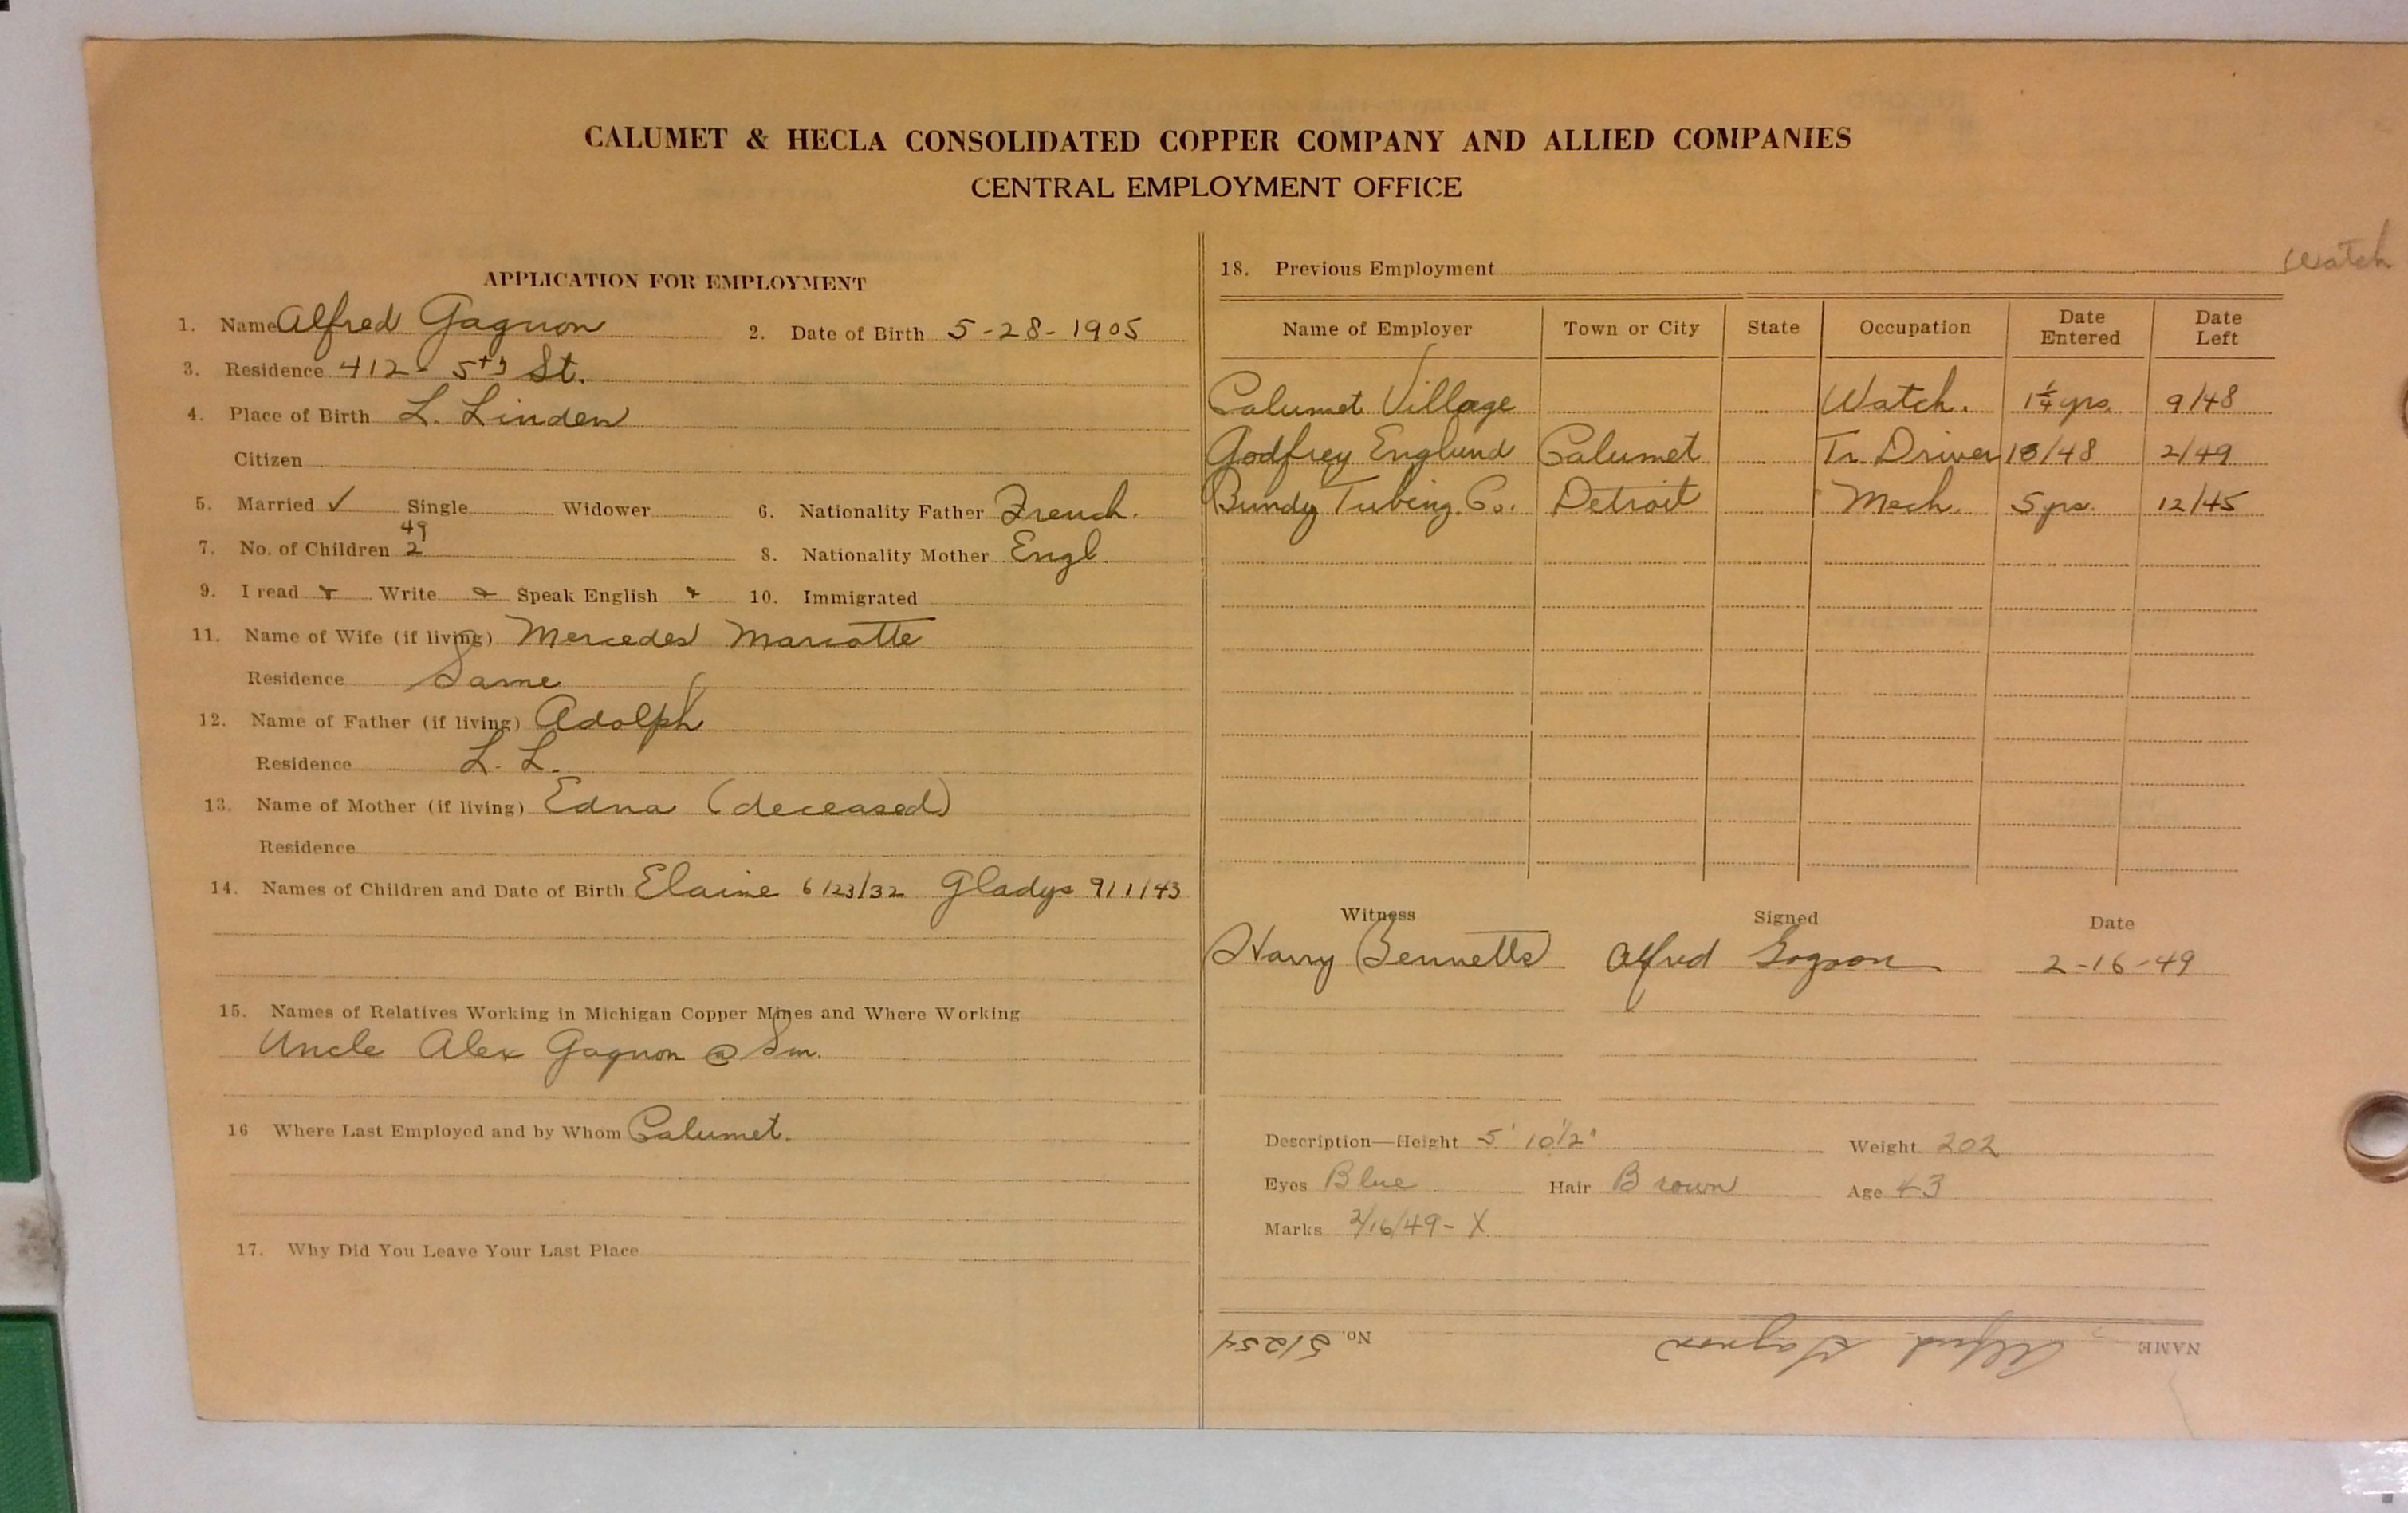 CALUMET & HECLA CONSOLIDATED COPPER COMPANY AND ALLIED COMPANIES
CENTRAL EMPLOYMENT OFFICE
APPLICATION FOR EMPLOYMENT
1. Name Alfred Gagnon 2. Date of Birth 5-28-1905
3. Residence 412 - 5th St.
4. Place of Birth L. Linden
Citizen
5. Married ✓ Single Widower 6. Nationality Father French.
49
7. No. of Children 2 8. Nationality Mother Engl
9. I read Write Speak English 10. Immigrated
11. Name of Wife (if living) Mercedes Marcotte
Residence Same
12. Name of Father (if living) Adolph
Residence L. L.
13. Name of Mother (if living) Edna (deceased)
Residence
14. Names of Children and Date of Birth Elaine 6/23/32 Gladys 9/1/43
15. Names of Relatives Working in Michigan Copper Mines and Where Working
Uncle Alex Gagnon @ Sm.
16 Where Last Employed and by Whom Calumet.
17. Why Did You Leave Your Last Place
18. Previous Employment
Watch
Name of Employer Town or City State Occupation Date Entered Date Left
Calumet Village Watch. 1¼ yrs. 9/48
Godfrey Englund Calumet Tr. Driver /48 2/49
Bundy Tubing Co. Detroit Mech. 5 yrs. 12/45
Witness Signed Date
Harry Bennetts Alfred Gagnon 2-16-49
Description—Height 5' 10½" Weight 202
Eyes Blue Hair Brown Age 43
Marks 2/16/49 - X
NAME Alfred Gagnon No. 51254